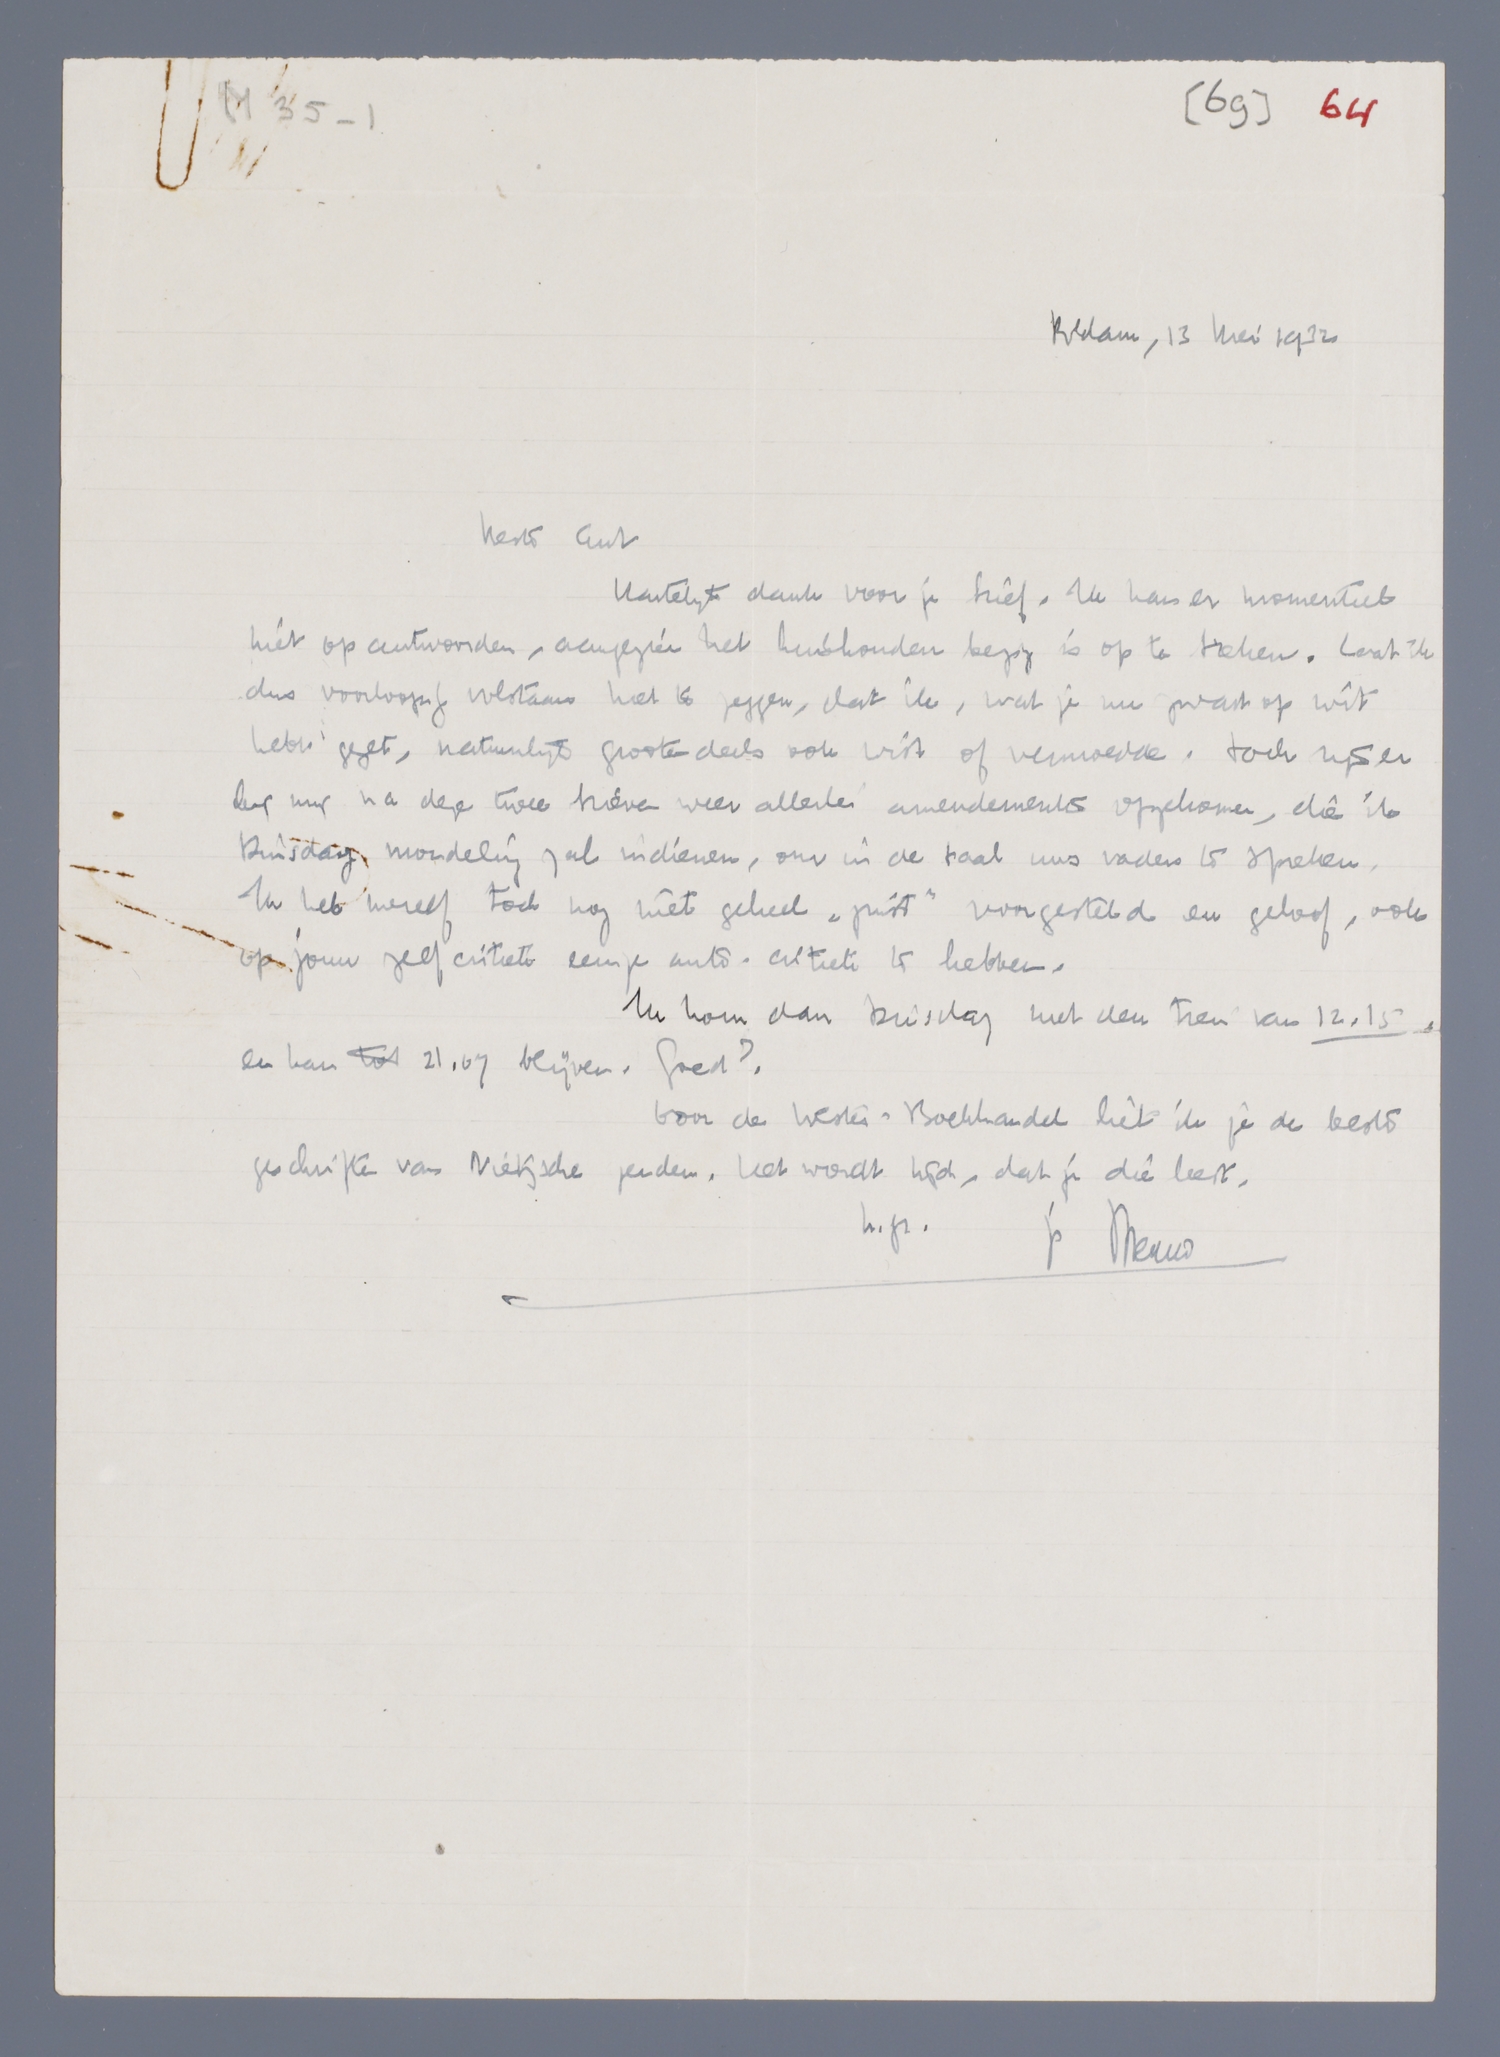 M 35-1
[69] 64
R'dam, 13 Mei 1932
Beste Ant
Hartelijk dank voor je brief. Ik kan er momenteel
niet op antwoorden, aangezien het huishouden bezig is op te breken. Laat ik
dus voorloopig volstaan met te zeggen, dat ik, wat je nu zwart op wit
hebt gezet, natuurlijk grootendeels ook wist of vermoedde. Toch zijn er
bij mij na deze twee brieven weer allerlei amendementen opgekomen, die ik
Dinsdag mondeling zal indienen, om in de taal uws vaders te spreken.
Ik heb mezelf toch nog niet geheel „juist" voorgesteld en geloof, ook
op jouw zelfcritiek eenige auto-critiek te hebben.
Ik kom dan Dinsdag met den trein van 12.15.
en kan tot 21.07 blijven. Goed?.
Door de Wester-Boekhandel liet ik je de beste
geschriften van Nietzsche zenden. Het wordt tijd, dat je die leest.
h.gr. je Menno